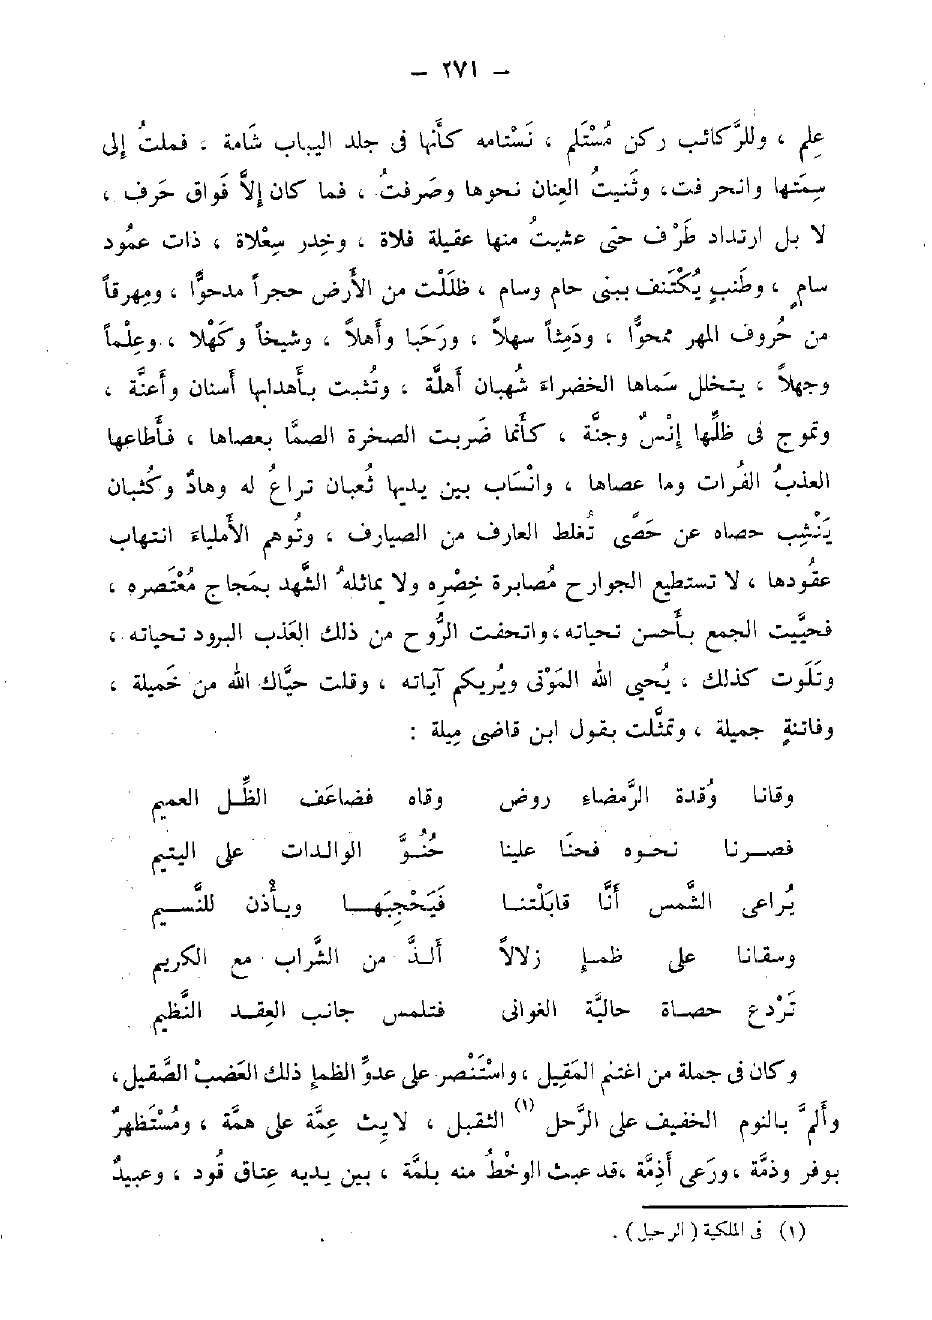 — ٢٧١ —
عِلم ، وللرَّكائب ركن مُسْتَلم ، نَسْتامه كأَنها فى جلد اليباب شَامة ، فملتُ إلى
سِمَتها وانحرفت، وثَنيتُ العِنان نحوها وصَرفتُ ، فما كان إلاَّ فَواق حَرف ،
لا بل ارتداد طَرْف حتى عشيتُ منها عقيلة فلاة ، وخِدر سِعْلاة ، ذات عمُود
سامٍ ، وطَنبٍ يُكْتَنف ببنى حام وسام ، ظلَلْت من الأَرض حجراً مدحوًّا ، ومِهرقاً
من حُروف المهر ممحوًّا ، ودَمِثاً سهلاً ، ورَحَبا وأَهلاً ، وشيخاً وكَهْلا ، وعِلْماً
وجهلاً ، يتخلل سَماها الخضراء شُهبان أَهلَّة ، وتُثبت بأَهدابها أسنان وأَعنَّة ،
وتموج فى ظلِّها إنْسٌ وجنَّة ، كأَنما ضَربت الصخرة الصمَّا بعصاها ، فأَطاعها
العذبُ الفُرات وما عصاها ، وانْسَاب بين يديها ثُعبان تراعُ له وهادٌ وكُثبان
يَنْشِب حصاه عن حَصًى تُغلط العارف من الصيارف ، وتُوهم الأَملياءَ انتهاب
عقُودها ، لا تستطيع الجوارح مُصابرة خِصْره ولا يماثلهُ الشَّهد بمَجاج مُعْتَصره ،
فحيَّيت الجمع بأَحسن تحياته، واتحفت الرُّوح من ذلك العَذب البرود تحياته ،
وتَلَوت كذلك ، يُحيى الله المَوْتى ويُريكم آياته ، وقلت حيَّاك الله من خَميلة ،
وفاتنةٍ جميلة ، وتمثَّلت بقول ابن قاضى مِيلة :
وقانا وَقْدة الرَّمضاء روض وقاه فضاعَف الظِّل العميم
فصرنا نحوه فحنَا علينا حُنُوَّ الوالدات على اليتيم
يُراعى الشَّمس أَنَّا قابَلَتْنا فَيَحْجِبَها ويأْذن للنَّسيم
وسقانا على ظمإ زلالاً أَلذَّ من الشَّراب مع الكريم
تَرْدع حصاة حاليَّة الغوانى فتلمس جانب العِقد النَّظيم
وكان فى جملة من اغتنم المَقِيل ، واسْتَنْصر على عدوِّ الظما ذلك العَضبْ الصَّقيل،
وأَلمَّ بالنوم الخفيف على الرَّحل (١) الثقيل ، لايث عِمَّة على همَّة ، ومُسْتَظهرٌ
بوفر وذمَّة ، ورَعى أَذِمَّة ،قد عبث الوخْطُ منه بلمَّة ، بين يديه عِتاق قُود ، وعبيدٌ
(١) فى الملكية (الرحيل) .